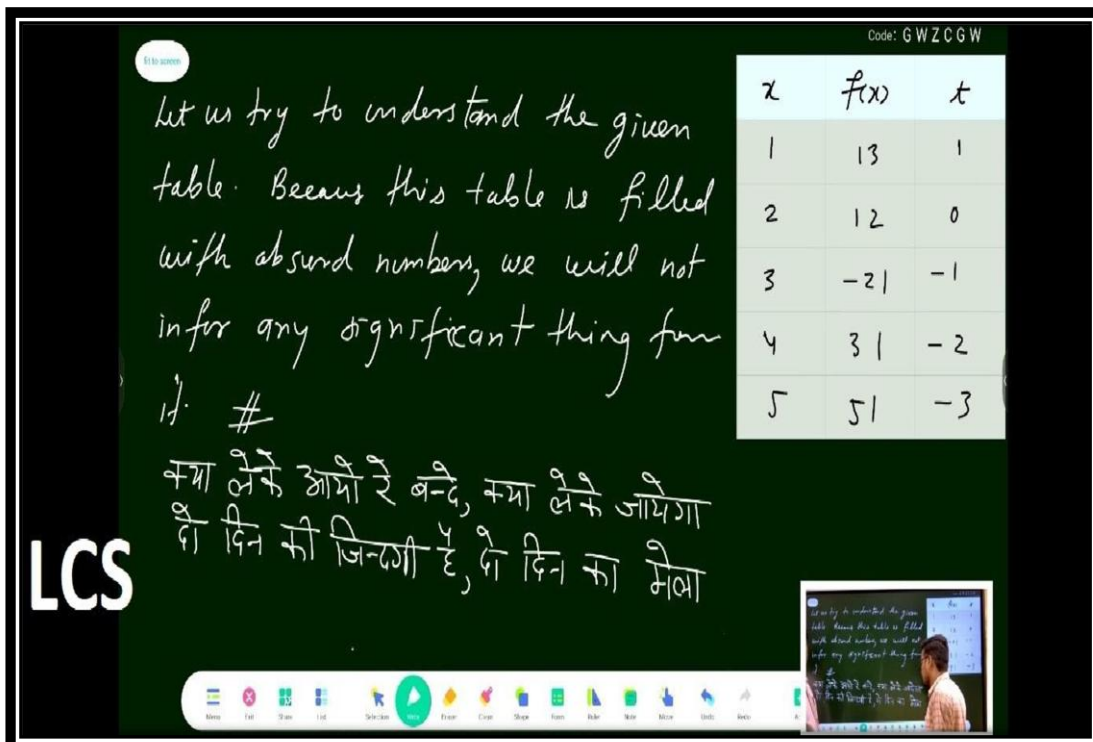 Code: GWZCGW
fit to screen
Let us try to understand the given
table. Becaus this table is filled
with absurd numbers, we will not
infer any significant thing from
it. #
क्या लेके आयो रे बन्दे, क्या लेके जायेगा
दो दिन की जिन्दगी है, दो दिन का मेला
x f(x) t
1 13 1
2 12 0
3 -21 -1
4 31 -2
5 51 -3
LCS
Menu Exit Share List Selection Write Eraser Clear Shape Form Ruler Note Move Undo Redo